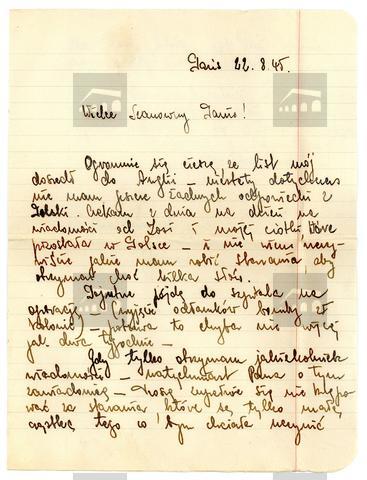 Paris 22.8.45.
Wielce Szanowny Panie!
Ogromnie się cieszę że list mój
doszedł do Anglii – niestety dotychczas
nie mam jeszcze żadnych odpowiedzi z
Polski. Czekam z dnia na dzień na
wiadomości od Zosi i mojej ciotki która
pozostała w Polsce – i nie wiem oczy-
wiście jakie mam robić starania aby
otrzymać choć kilka słów.
pójdę do szpitala na
operację (wyjęcie odłamków bomby z
kolana) – potrwa to chyba nie więcej
jak dwa tygodnie –
Gdy tylko otrzymam jakiekolwiek
wiadomości – natychmiast Pana o tym
zawiadomię – Proszę zupełnie się nie krępo
wać za starania które są tylko małą
cząstką tego co bym chciała uczynić